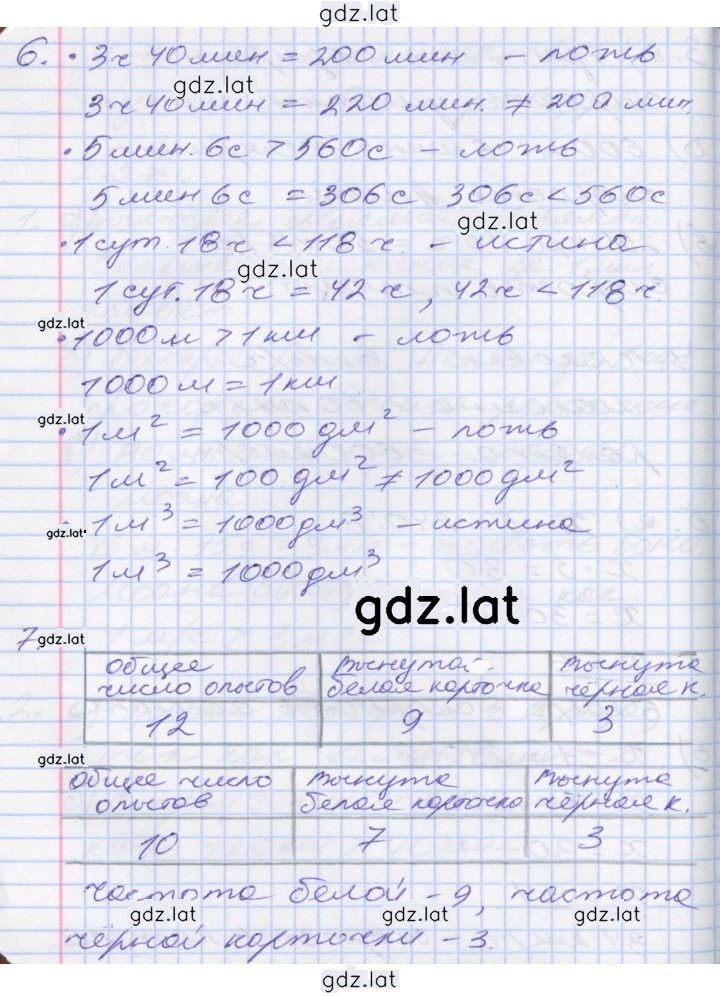 gdz.lat
6. · 3ч 40мин = 200мин – ложь
gdz.lat
3ч 40мин = 220 мин. ≠ 200 мин.
· 5мин. 6с > 560с – ложь
5мин 6с = 306с 306с < 560с
gdz.lat
· 1сут. 18ч < 118ч. – истина
gdz.lat
1сут. 18ч = 42ч, 42ч < 118ч.
gdz.lat
· 1000м > 1км – ложь
1000м = 1км
gdz.lat
· 1м² = 1000дм² – ложь
1м² = 100дм² ≠ 1000дм²
· 1м³ = 1000дм³ – истина
gdz.lat
1м³ = 1000дм³
gdz.lat
7. gdz.lat
общее число опытов | вынута белая карточка | вынута чёрная к.
12 | 9 | 3
gdz.lat
общее число опытов | вынута белая карточка | вынута чёрная к.
10 | 7 | 3
gdz.lat
частота белой – 9, частота
gdz.lat gdz.lat
чёрной карточки – 3.
gdz.lat